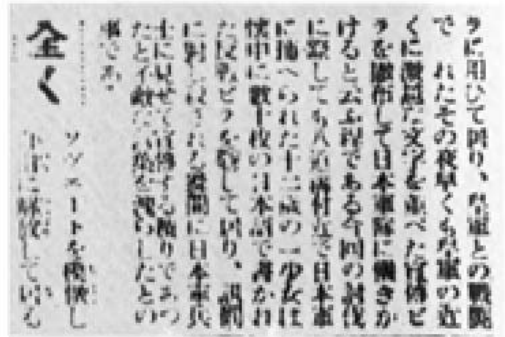 ラに用ひて囘り、皇軍との戰鬪
で れたその夜早くも皇軍の近
くに激越な文字を並べた宣傳ビ
ラを撒布して日本軍隊に働きか
けると云ふ程である今回の討伐
に際しても八道溝付近で日本軍
に捕へられた十二歳の一少女は
懷中に數十枚の日本語で書かれ
た反戰ビラを藏して囘り、訊問
に對し殺された瞬間に日本軍兵
士に見せて宣傳する積りであつ
たと不敵な言葉を洩らしたとの
事である
全く
ソヴエートを模倣し
に解放して囘る